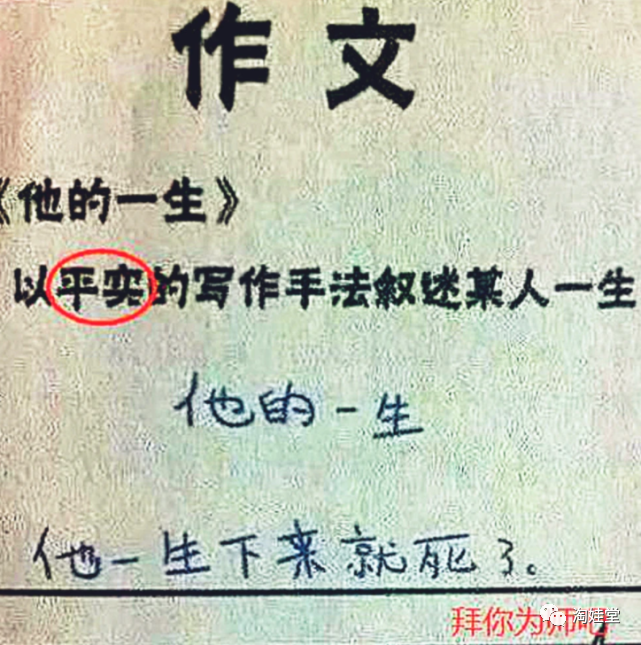 作文
《他的一生》
以平实的写作手法叙述某人一生
他的一生
他一生下来就死了。
拜你为师吧
淘娃堂